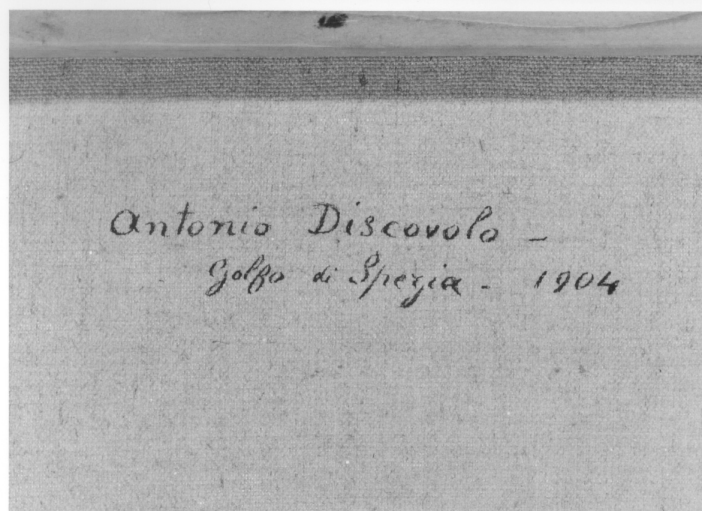 Antonio Discovolo -
Golfo di Spezia - 1904